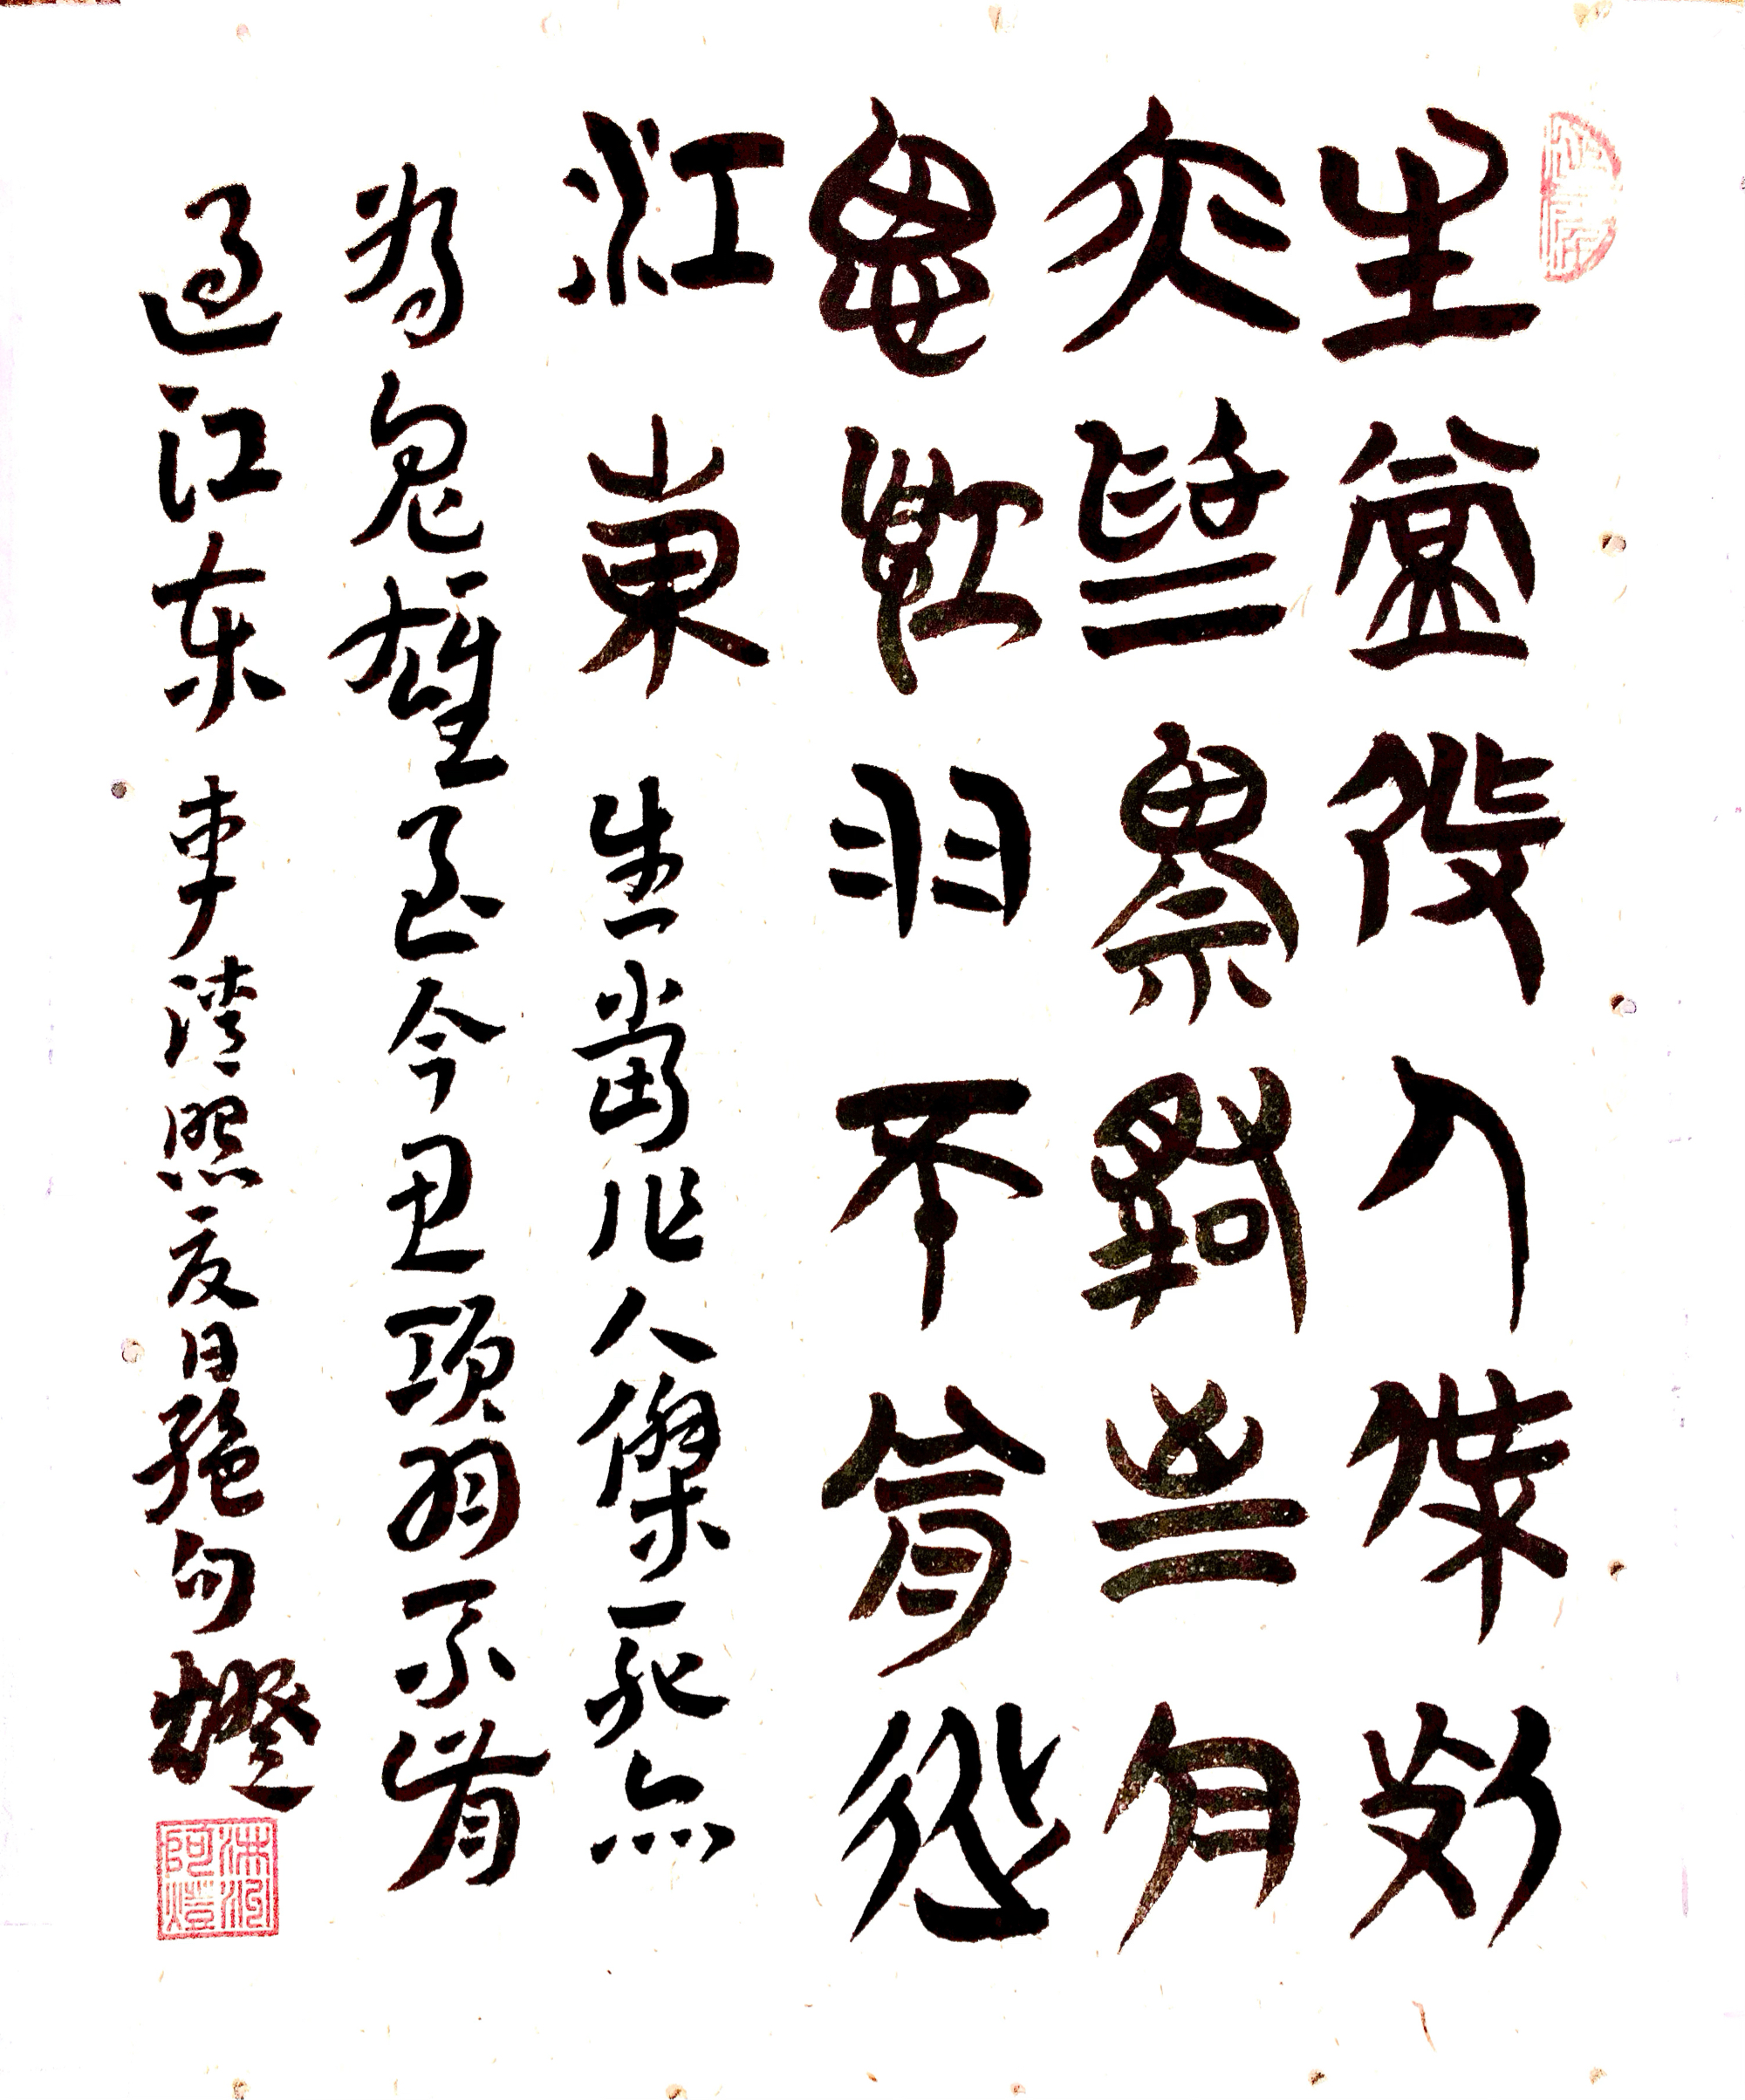 生當作人傑死
亦為鬼雄至今
思項羽不肯過
江東
生當作人傑死亦
為鬼雄至今思項羽不肯
過江東 李清照夏日絕句 燈